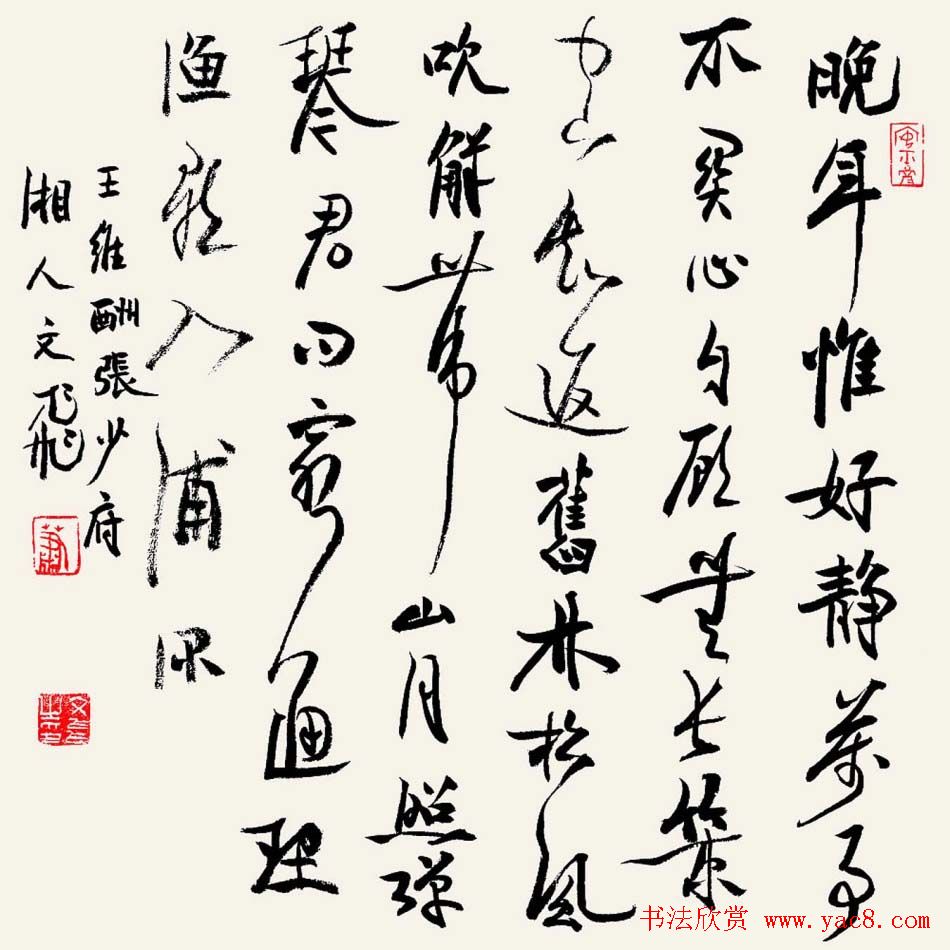 晚年惟好静萬事
不関心自顾無长策
空知返舊林松風
吹解帶山月照弹
琴君问窮通理
渔歌入浦深
王維酬張少府
湘人文飛
书法欣赏 www.yac8.com